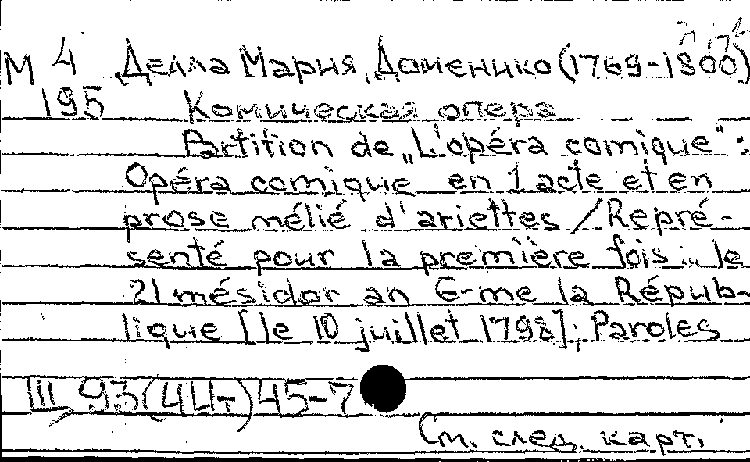 М 4 Делла Мария, Доменико (1769-1800)
195 Комическая опера
Partition de „L'opéra comique":
Opéra comique en 1 acte et en
prose mélié d'ariettes / Repré-
senté pour la première fois... le
21 mésidor an 6-me la Répub-
lique [le 10 juillet 1798]; Paroles
Щ 93(44-)45-7
См. след. карт.